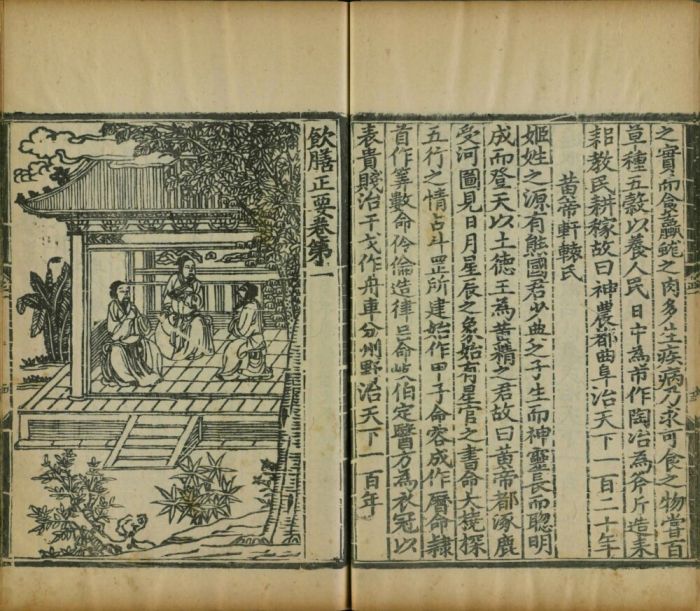 之實而食蠃蛖之肉多生疾病乃求可食之物嘗百
草種五穀以養人民日中為市作陶冶為斧斤造耒
耜教民耕稼故曰神農都曲阜治天下一百二十年
黄帝軒轅氏
姬姓之源有熊國君少典之子生而神靈長而聰明
成而登天以土德王為黄精之君故曰黄帝都涿鹿
受河圖見日月星辰之象始有星官之書命大撓探
五行之情占斗罡所建始作甲子命容成作曆命隸
首作筭數命伶倫造律吕命岐伯定醫方為衣冠以
表貴賤治干戈作舟車分州野治天下一百年
飲膳正要卷第一